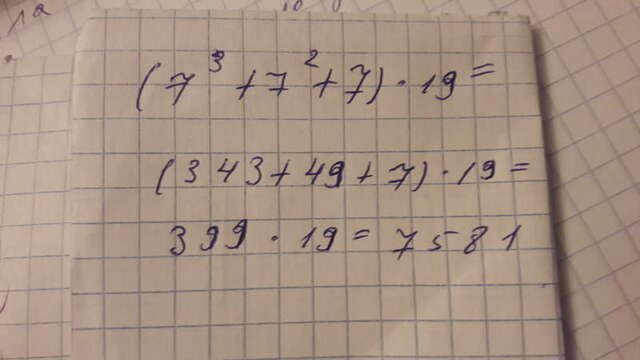 (7³+7²+7)·19=
(343+49+7)·19=
399·19=7581